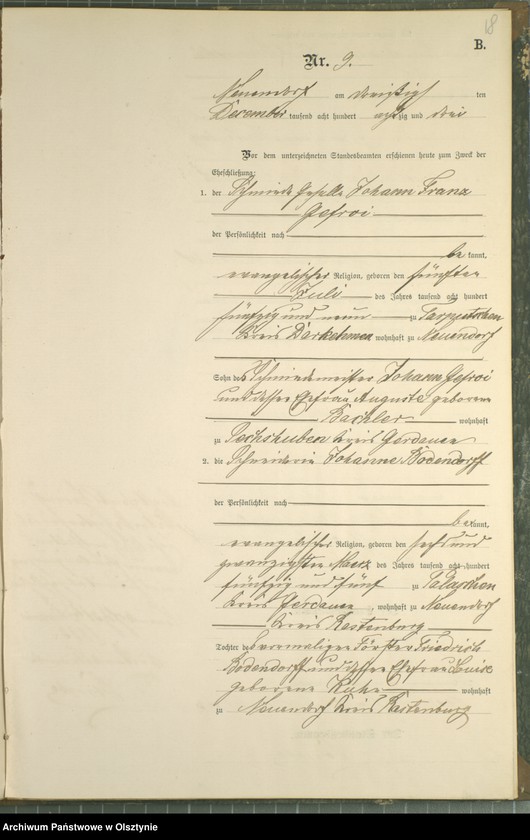 18
B.
Nr. 9.
Neuendorf am dreißigs ten
December tausend acht hundert achtzig und drei
Vor dem unterzeichneten Standesbeamten erschienen heute zum Zweck der
Eheschließung:
1. der Schmiede Geselle Johann Franz
Gefroi
der Persönlichkeit nach
be kannt,
evangelischer Religion, geboren den fünften
Juli des Jahres tausend acht hundert
fünfzig und neun zu
Kreis Darkehmen wohnhaft zu Neuendorf
Sohn des Schmiedemeister Johann Gefroi
und dessen Ehefrau Auguste geborene
Bachler wohnhaft
zu Kreis Gerdauen
2. die Schneiderin Johanne Bodendorff
der Persönlichkeit nach
be kannt,
evangelischer Religion, geboren den sechs und
zwanzigsten März des Jahres tausend acht hundert
fünfzig und fünf zu
Kreis Gerdauen, wohnhaft zu Neuendorf
Kreis Rastenburg
Tochter des ehemaligen Förster Friedrich
Bodendorff und dessen Ehefrau Luise
geborene Kuhn wohnhaft
zu Neuendorf Kreis Rastenburg
Archiwum Państwowe w Olsztynie